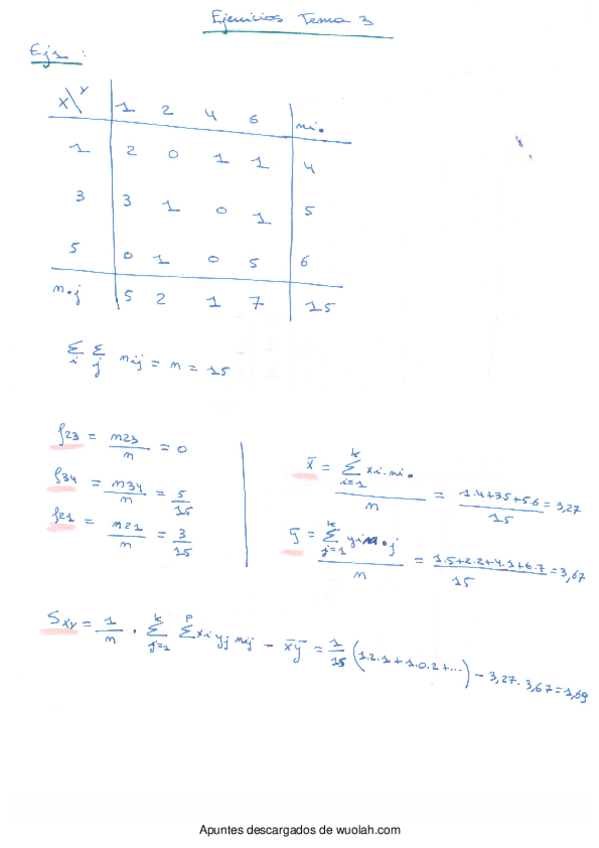 Ejercicios Tema 3
Ej1:
X\Y 1 2 4 6 ni.
1 2 0 1 1 4
3 3 1 0 1 5
5 0 1 0 5 6
n.j 5 2 1 7 15
Σi Σj nij = n = 15
f23 = n23/n = 0
f34 = n34/n = 5/15
f21 = n21/n = 3/15
x̄ = Σ(i=1, k) xi.ni. / n = 1.4+3.5+5.6 / 15 = 3,27
ȳ = Σ(j=1, k) yj n.j / n = 1.5+2.2+4.1+6.7 / 15 = 3,67
Sxy = 1/n . Σ(j=1, k) Σ(p) xi yj nij - x̄ȳ = 1/15 (1.2.1+1.0.2+...) - 3,27.3,67 = 1,69
Apuntes descargados de wuolah.com